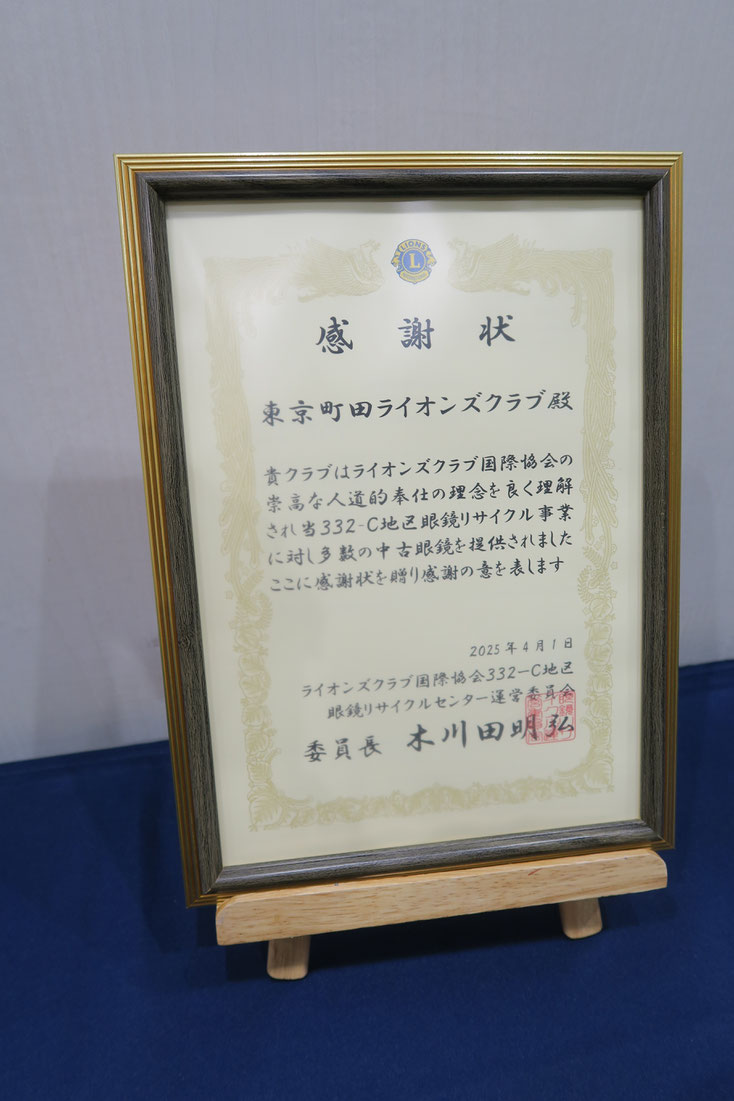 LIONS
L
感謝状
東京町田ライオンズクラブ殿
貴クラブはライオンズクラブ国際協会の
崇高な人道的奉仕の理念を良く理解
され当332-C地区眼鏡リサイクル事業
に対し多数の中古眼鏡を提供されました
ここに感謝状を贈り感謝の意を表します
2025年4月1日
ライオンズクラブ国際協会332-C地区
眼鏡リサイクルセンター運営委員会
委員長 木川田明弘